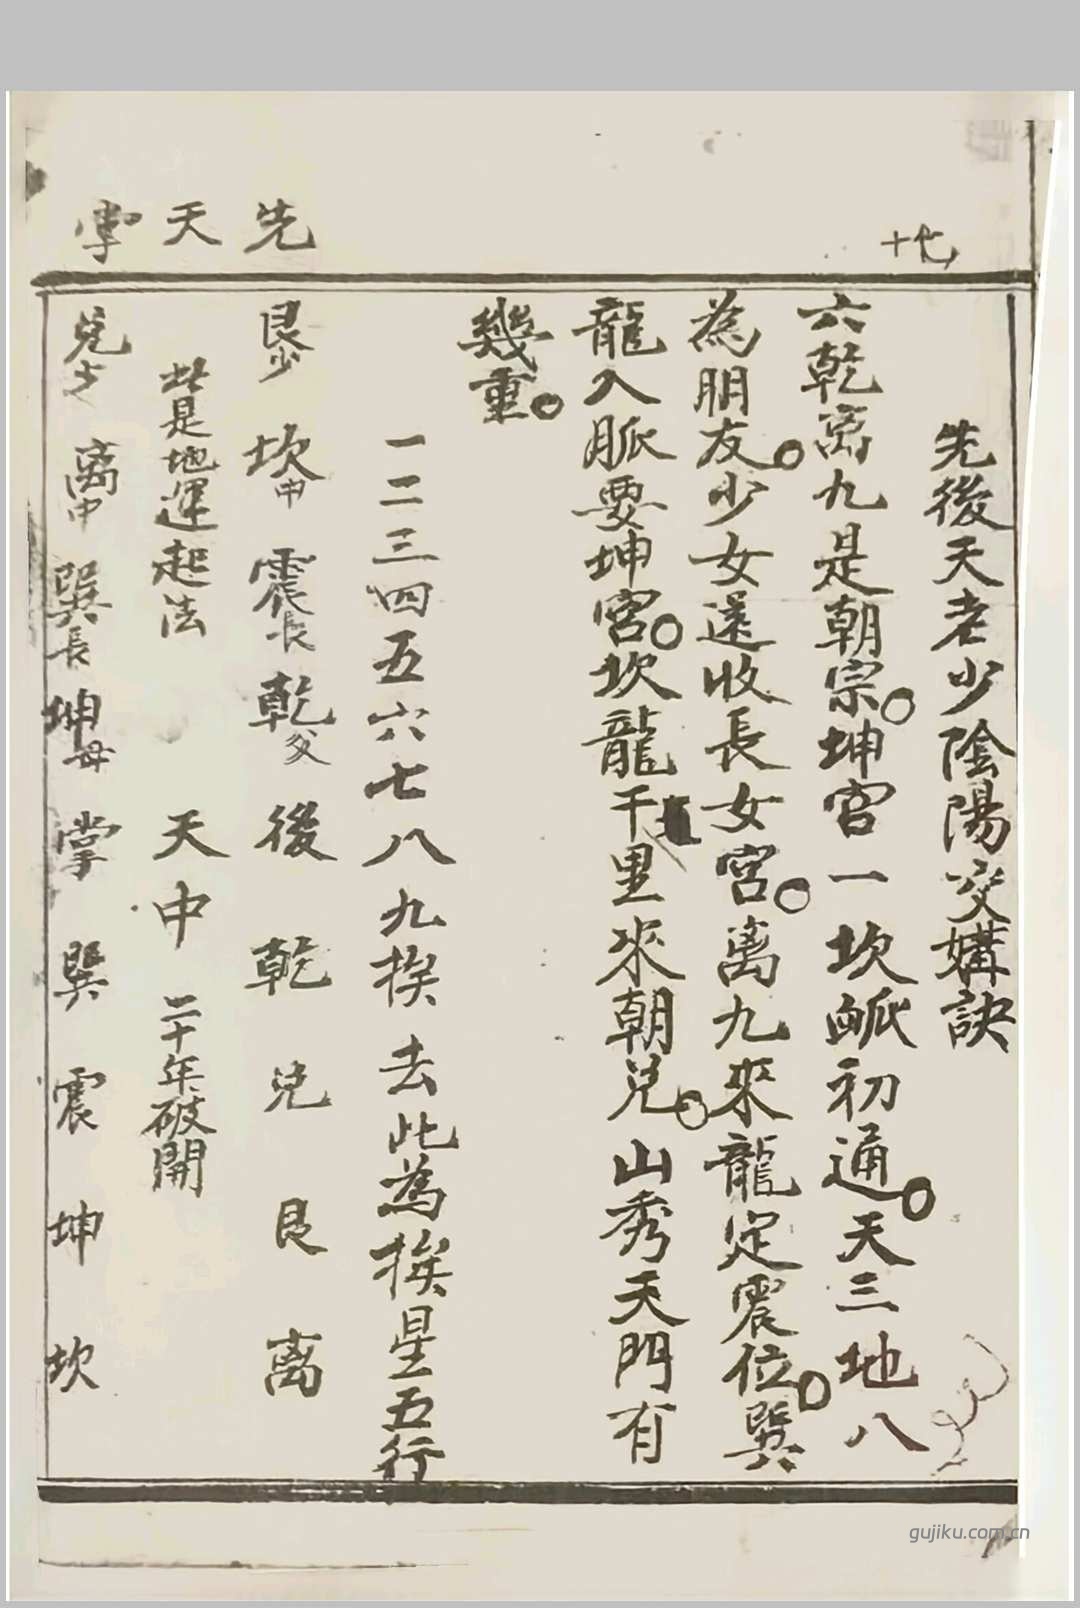 十七
先後天老少陰陽交媾訣
六乾离九是朝宗○坤宮一坎脈初通○天三地八
為朋友○少女還收長女宮○离九來龍定震位○巽
龍入脈要坤宮○坎龍千里來朝兑○山秀天門有
幾重○
一二三四五六七八九挨去此為挨星五行
先 艮少 坎中 震長 乾父 後 乾 兑 艮 离
天 此是地運起法 天中 二十年破開
掌 兑少 离中 巽長 坤母 掌 巽 震 坤 坎
gujiku.com.cn